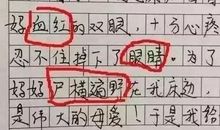 好血红的双眼，十分心疼
忍不住掉下了眼睛。为了
好好尸横遍野在我床边，
是伟大的母爱！于是我给